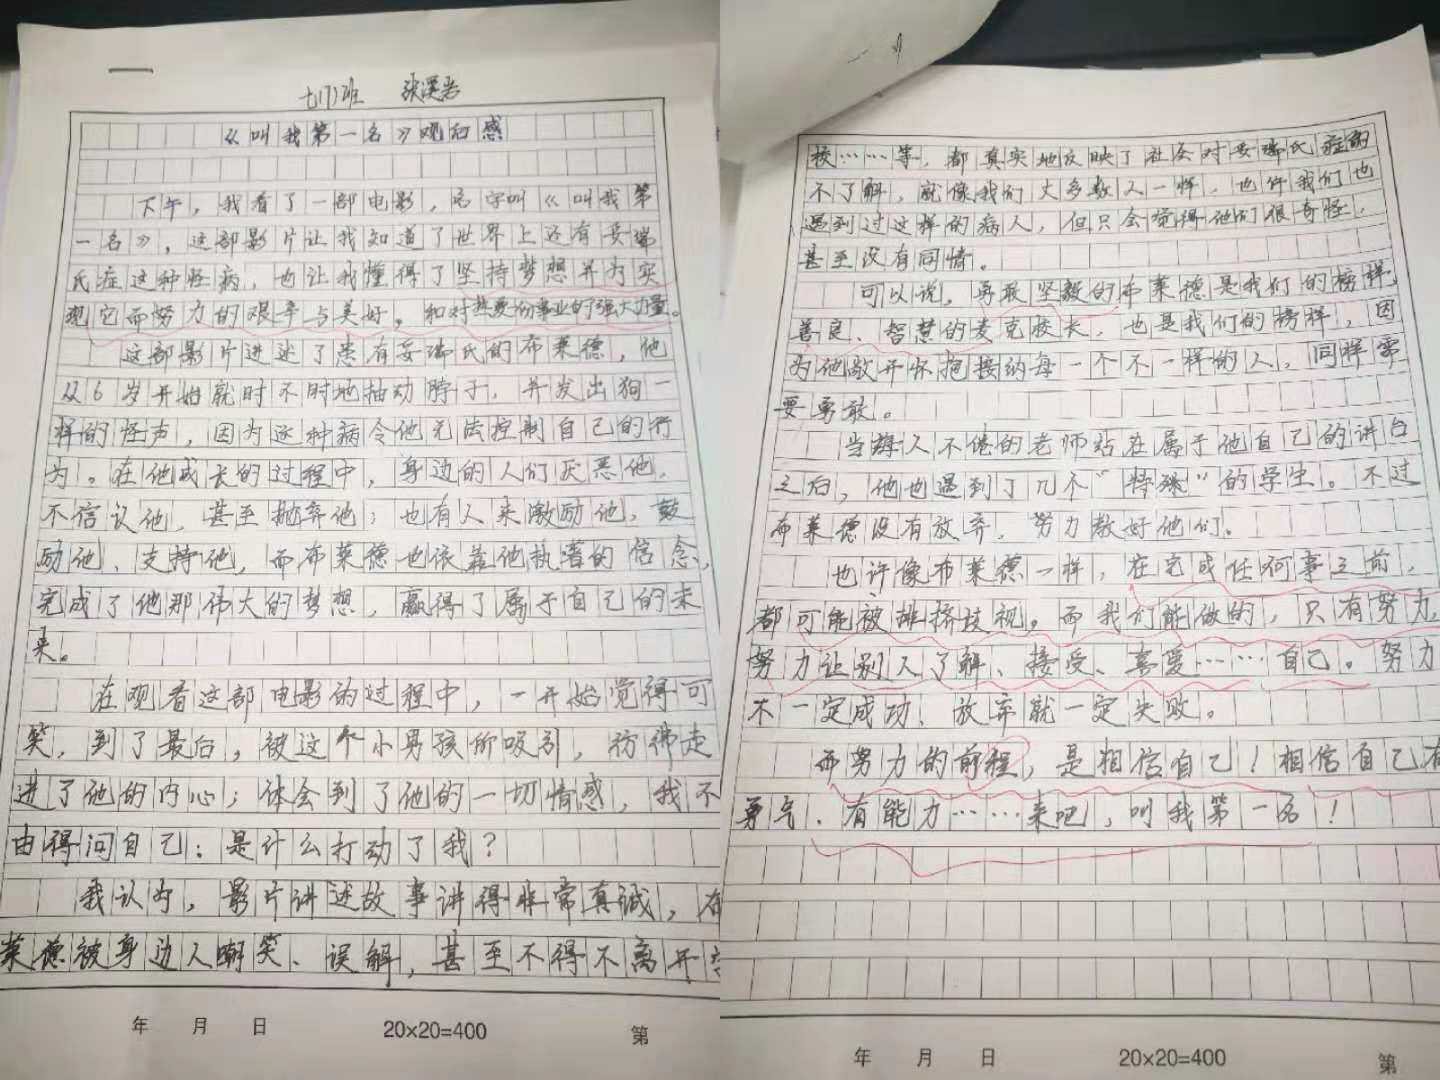 七(7)班 张溪岩
《叫我第一名》观后感
下午，我看了一部电影，名字叫《叫我第
一名》，这部影片让我知道了世界上还有妥瑞
氏症这种怪病，也让我懂得了坚持梦想并为实
现它而努力的艰辛与美好。和对热爱份事业的强大力量。
这部影片讲述了患有妥瑞氏的布莱德，他
从6岁开始就时不时地抽动脖子，并发出狗一
样的怪声，因为这种病令他无法控制自己的行
为。在他成长的过程中，身边的人们厌恶他，
不信认他，甚至抛弃他；也有人来激励他、鼓
励他、支持他，而布莱德也依靠他执着的信念，
完成了他那伟大的梦想，赢得了属于自己的未
来。
在观看这部电影的过程中，一开始觉得可
笑，到了最后，被这个小男孩所吸引，仿佛走
进了他的内心；体会到了他的一切情感，我不
由得问自己：是什么打动了我？
我认为，影片讲述故事讲得非常真诚，布
莱德被身边人嘲笑、误解，甚至不得不离开学
年 月 日 20×20=400 第
校……等，都真实地反映了社会对妥瑞氏症的
不了解，就像我们大多数人一样，也许我们也
遇到过这样的病人，但只会觉得他们很奇怪，
甚至没有同情。
可以说，勇敢坚毅的布莱德是我们的榜样，
善良、智慧的麦克校长，也是我们的榜样，因
为他敞开怀抱接纳每一个不一样的人，同样需
要勇敢。
当诲人不倦的老师站在属于他自己的讲台
之后，他也遇到了几个“特殊”的学生。不过
布莱德没有放弃，努力教好他们。
也许像布莱德一样，在完成任何事之前，
都可能被排挤歧视。而我们能做的，只有努力，
努力让别人了解、接受、喜爱……自己。努力
不一定成功，放弃就一定失败。
而努力的前程，是相信自己！相信自己有
勇气、有能力……来吧，叫我第一名！
年 月 日 20×20=400 第